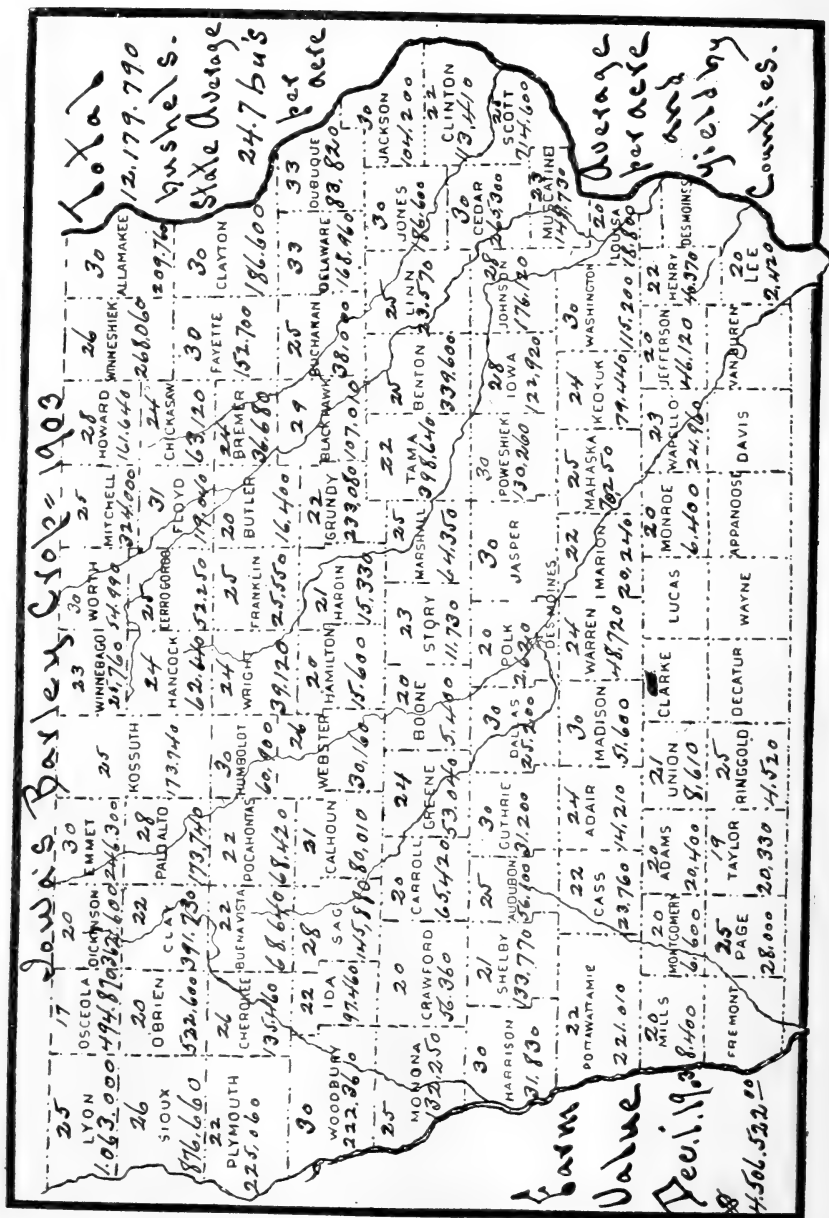 Iowa's Barley Crop = 1903
Total
12,179.790
bushels.
State Average
24.7 bu's
per
acre
25
LYON
1,063.000
17
OSCEOLA
494.870
20
DICKINSON
362.600
30
EMMET
246.300
25
KOSSUTH
173.740
23
WINNEBAGO
25.760
30
WORTH
54.990
25
MITCHELL
324.000
28
HOWARD
161.640
26
WINNESHIEK
268.060
30
ALLAMAKEE
209.760
26
SIOUX
876.660
20
O'BRIEN
522.600
22
CLAY
391.730
28
PALO ALTO
173.740
24
HANCOCK
62.640
25
CERRO GORDO
52.250
31
FLOYD
119.040
24
CHICKASAW
63.120
30
FAYETTE
152.700
30
CLAYTON
186.600
22
PLYMOUTH
225.060
26
CHEROKEE
135.460
22
BUENA VISTA
68.640
22
POCAHONTAS
68.420
30
HUMBOLDT
60.900
24
WRIGHT
39.120
25
FRANKLIN
25.550
20
BUTLER
16.400
24
BREMER
36.680
30
WOODBURY
222.360
22
IDA
97.460
28
SAC
145.880
21
CALHOUN
80,010
26
WEBSTER
30,160
20
HAMILTON
15.600
21
HARDIN
15.330
22
GRUNDY
233.080
29
BLACK HAWK
107.010
25
BUCHANAN
38.000
33
DELAWARE
168.960
33
DUBUQUE
83,820
25
MONONA
132.250
20
CRAWFORD
56.360
20
CARROLL
65.420
24
GREENE
53.040
20
BOONE
5.400
23
STORY
11.730
25
MARSHALL
64.350
22
TAMA
398.640
25
BENTON
339.600
25
LINN
23.570
30
JONES
86.600
30
JACKSON
104.200
22
CLINTON
113.410
30
HARRISON
31.830
21
SHELBY
133.770
25
AUDUBON
56.100
30
GUTHRIE
31.200
30
DALLAS
25.200
20
POLK
2.620
DES MOINES
30
JASPER
30
POWESHIEK
130.260
28
IOWA
122.920
28
JOHNSON
176.120
30
CEDAR
265.300
25
SCOTT
714.600
23
MUSCATINE
149.730
22
POTTAWATTAMIE
221.010
22
CASS
23.760
24
ADAIR
14,210
30
MADISON
51.600
24
WARREN
48.720
22
MARION
20,240
25
MAHASKA
70250
24
KEOKUK
79.440
30
WASHINGTON
115.200
20
LOUISA
18.800
20
MILLS
8.400
20
MONTGOMERY
6.600
20
ADAMS
20,400
21
UNION
8,610
CLARKE
LUCAS
20
MONROE
6.400
23
WAPELLO
24.960
20
JEFFERSON
46.120
22
HENRY
46.370
DES MOINES
FREMONT
25
PAGE
28.000
19
TAYLOR
20,330
25
RINGGOLD
4.520
DECATUR
WAYNE
APPANOOSE
DAVIS
VAN BUREN
20
LEE
2,420
Average
per acre
and
yield by
Counties.
Farm
Value
Dec. 1. 1903
$4.506.522.00